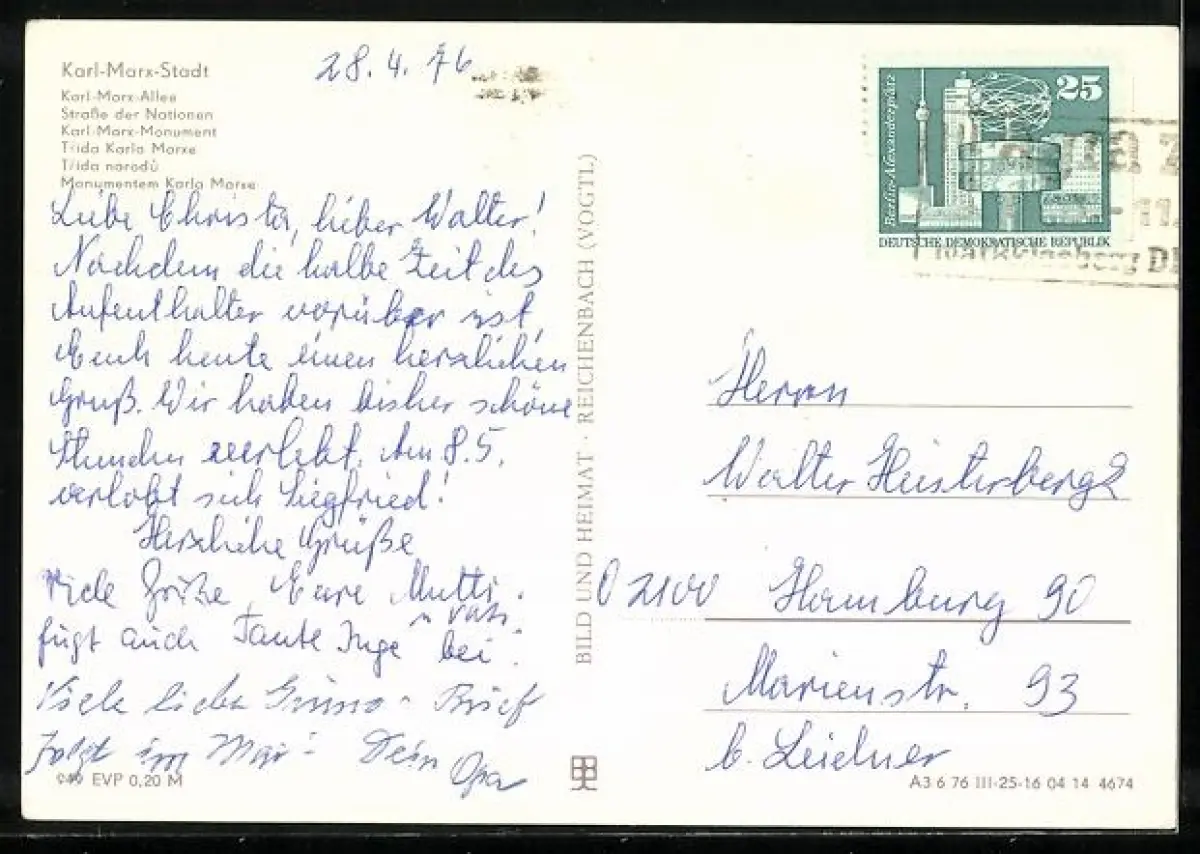 Karl-Marx-Stadt
Karl-Marx-Allee
Straße der Nationen
Karl-Marx-Monument
Třída Karla Marxe
Třída narodů
Monumentem Karla Marxe
28.4.76
Liebe Christa, lieber Walter!
Nachdem die halbe Zeit des
Aufenthaltes vorüber ist,
Euch heute einen herzlichen
Gruß. Wir haben bisher schöne
Stunden verlebt. Am 8.5.
verlobt sich Siegfried!
Herzliche Grüße
Eure Mutti
u. Vati
Viele Grüße
fügt auch Tante Inge bei.
Viele liebe Brief
folgt im Mai Dein Opa
949 EVP 0,20 M
BILD UND HEIMAT · REICHENBACH (VOGTL)
Berlin-Alexanderplatz
25
DEUTSCHE DEMOKRATISCHE REPUBLIK
Markkleeberg
Herrn
Walter Heisterberg
2100 Hamburg 90
Marienstr. 93
b. Leidner
A3 6 76 III-25-16 04 14 4674